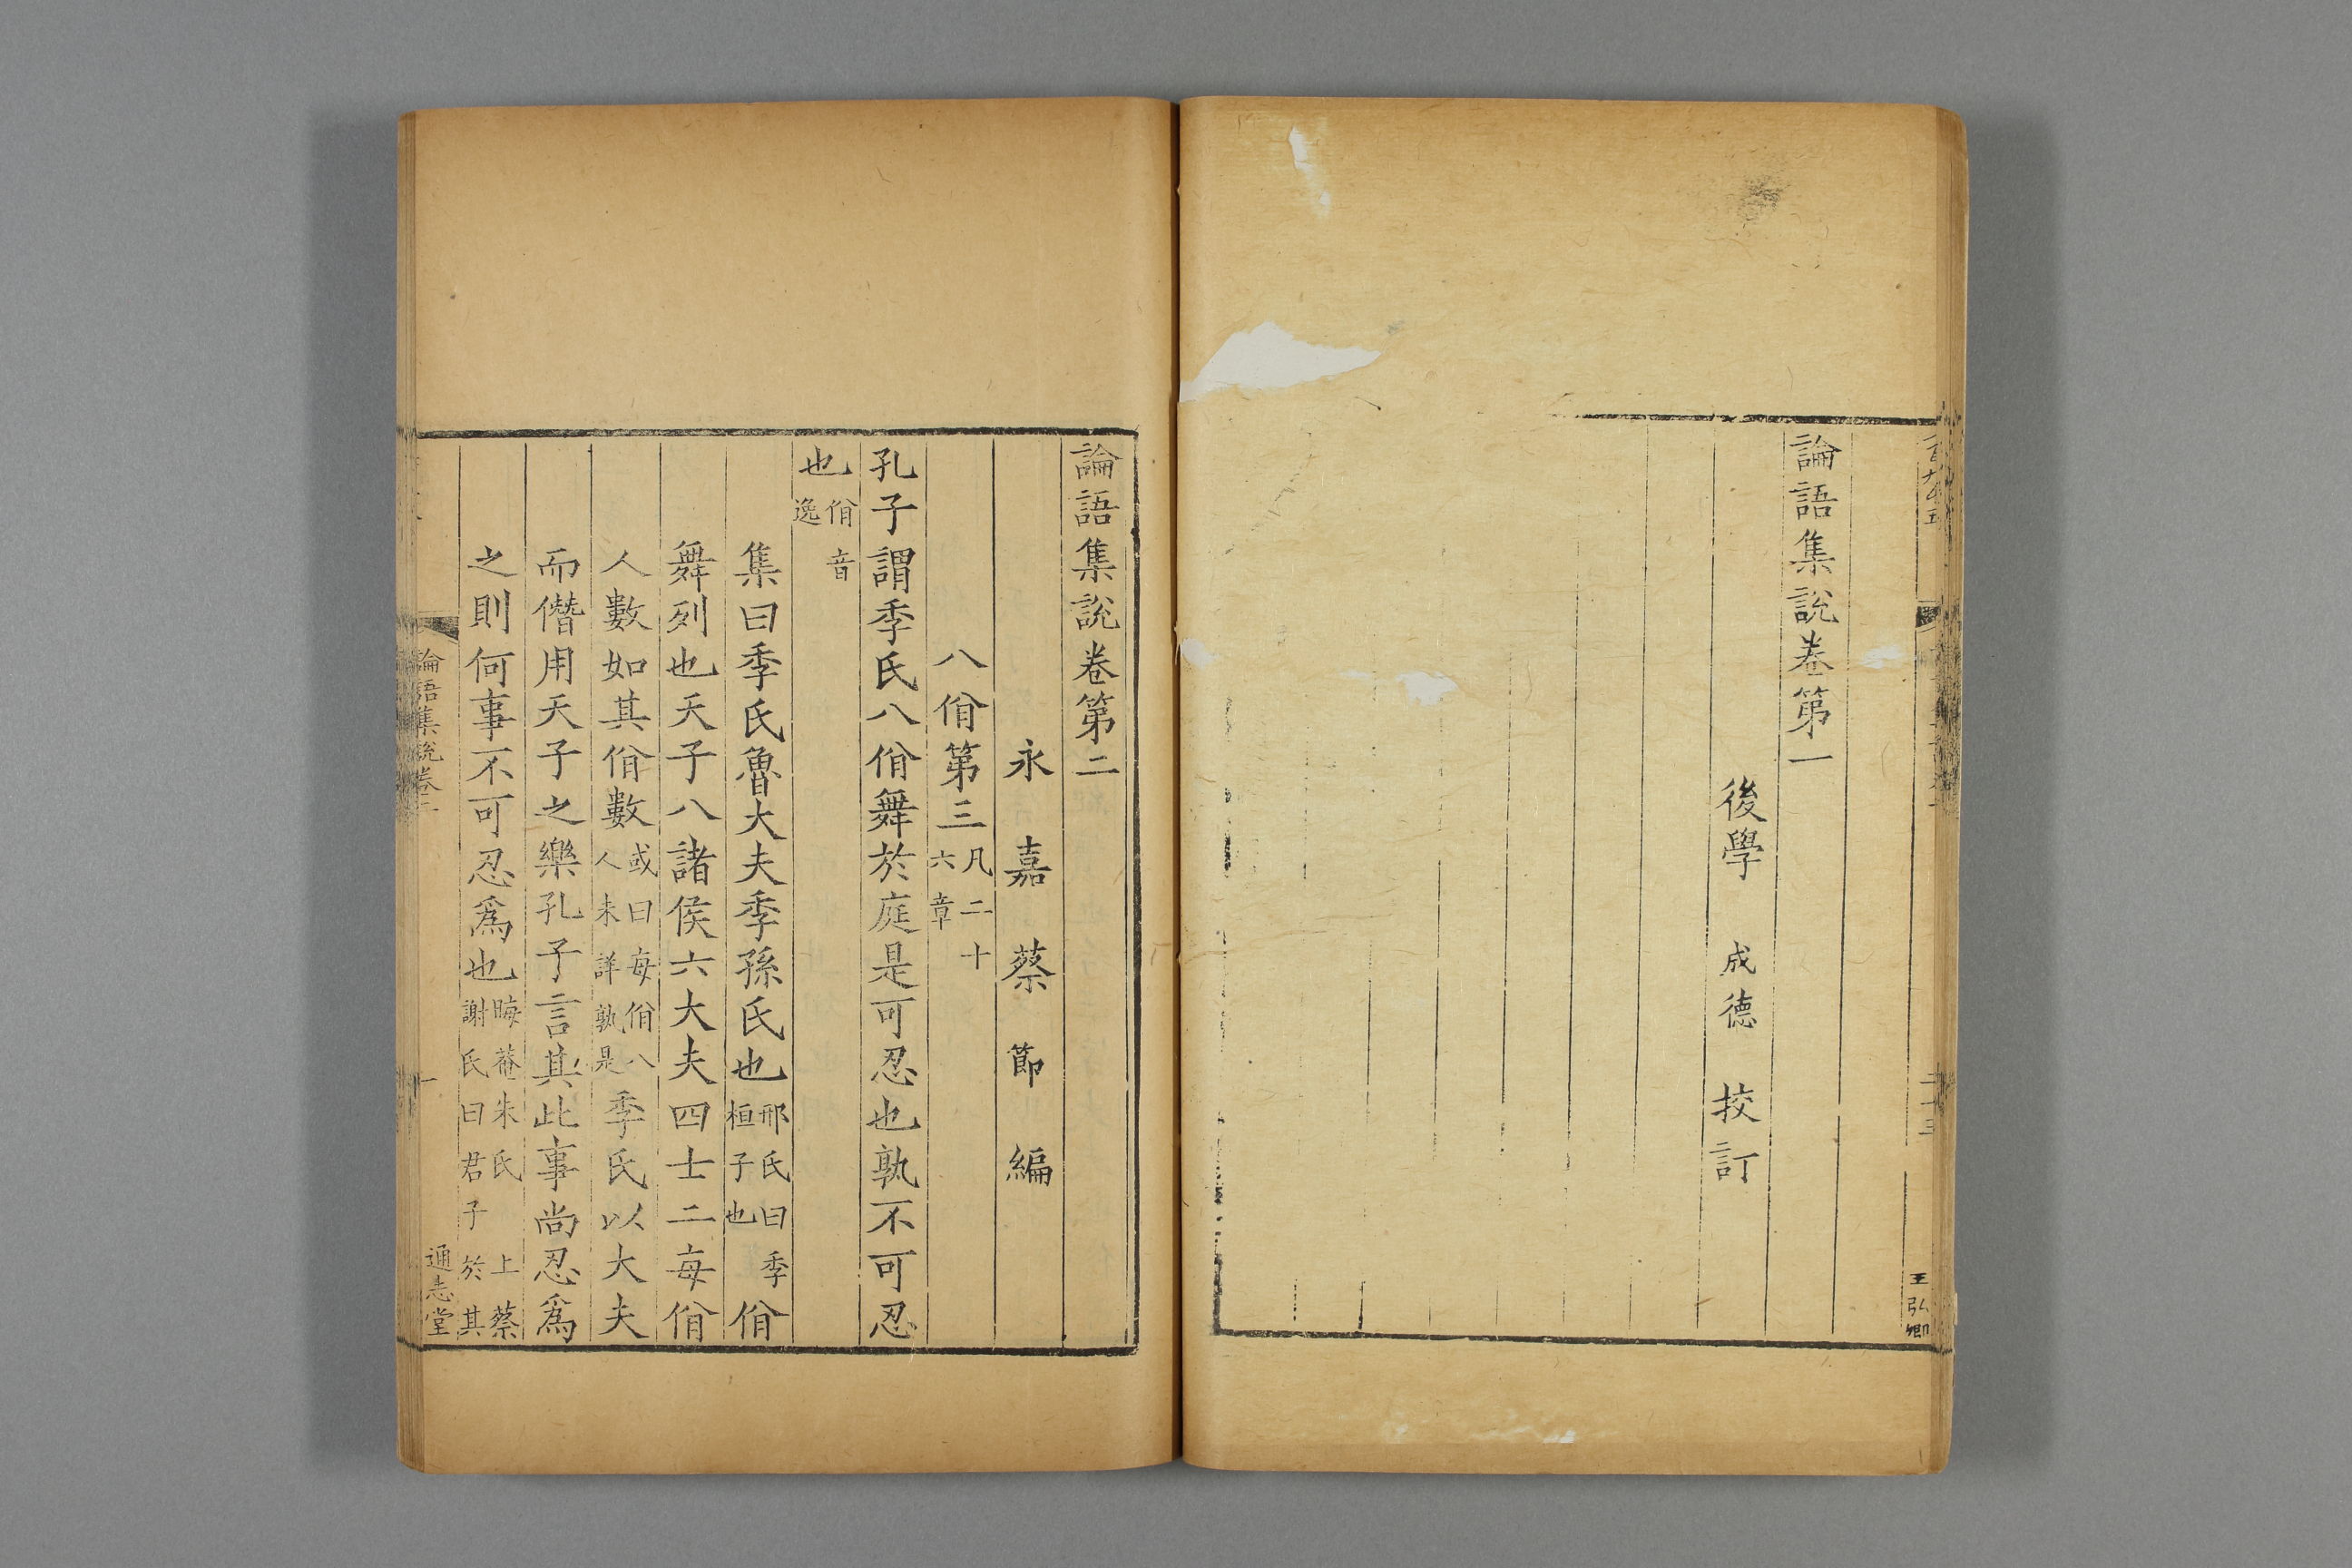 論語集說卷第一
後學 成德 挍訂
王弘卿
論語集說卷第二
永嘉蔡節編
八佾第三凡二十六章
孔子謂季氏八佾舞於庭是可忍也孰不可忍
也佾音逸
集曰季氏魯大夫季孫氏也邢氏曰季桓子也佾
舞列也天子八諸侯六大夫四士二每佾
人數如其佾數或曰每佾八人未詳孰是季氏以大夫
而僭用天子之樂孔子言其此事尚忍爲
之則何事不可忍爲也晦菴朱氏 上蔡謝氏曰君子於其
論語集說卷二
一
通志堂